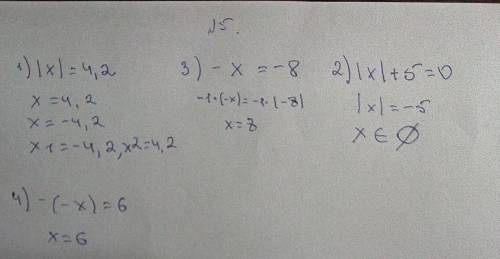 №5.
1) |x| = 4,2
x = 4,2
x = -4,2
x1 = -4,2, x2 = 4,2
3) - x = -8
-1·(-x) = -1·(-8)
x = 8
2) |x| + 5 = 0
|x| = -5
x ∈ ∅
4) - (-x) = 6
x = 6